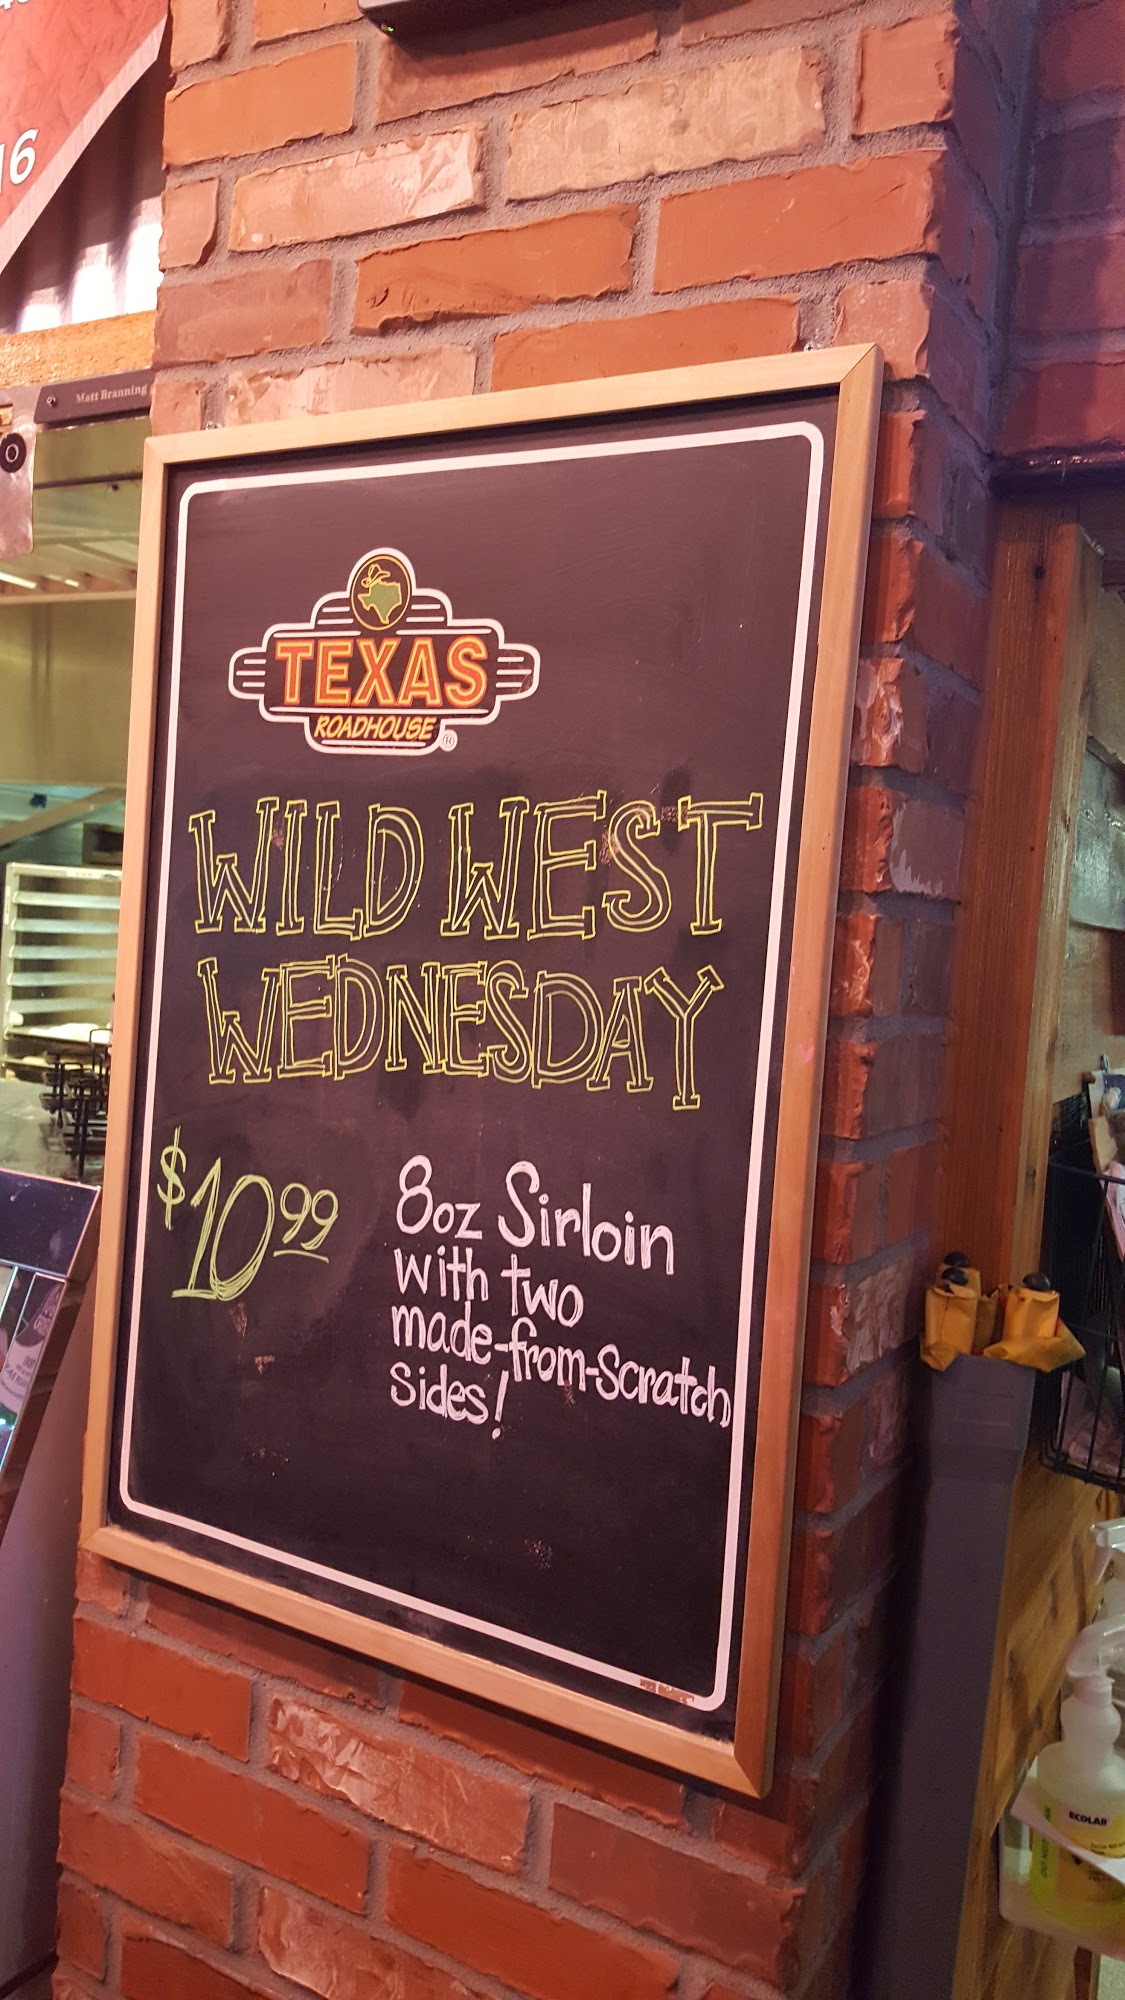 16
Matt Branning
TEXAS
ROADHOUSE
WILD WEST
WEDNESDAY
$10.99
8oz Sirloin
with two
made-from-scratch
sides!
ECOLAB